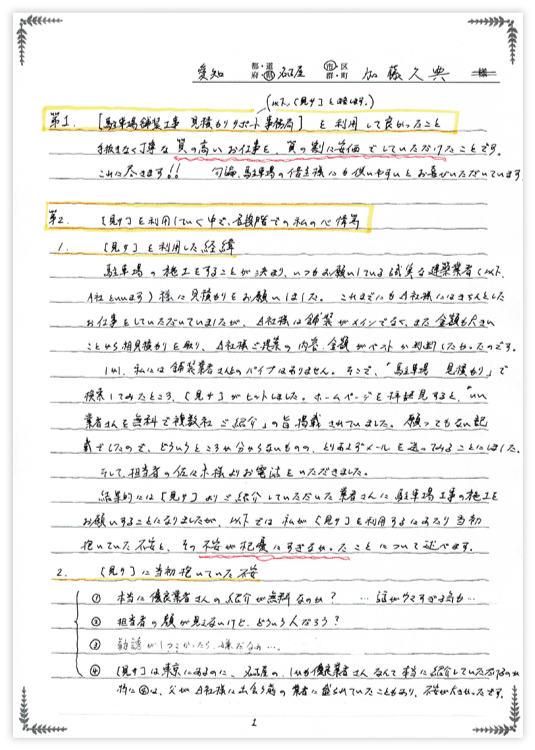 愛知 都・道 府・県 名古屋 市・区 群・町 加藤久典 様
(以下、[見サ]と略します。)
第1. [駐車場舗装工事 見積かりサポート事務局] を利用して良かったこと
手抜きなく丁寧な質の高いお仕事を、質の割に安価でしていただけたことです。
これに尽きます!! 勿論、駐車場の借主様にも使いやすいとお喜びいただいています。
第2. [見サ]を利用していく中で、各段階での私の心情等
1. [見サ]を利用した経緯
駐車場の施工をすることが決まり、いつもお願いしている誠実な建築業者(以下、
A社といいます)様に見積かりをお願いしました。これまでにもA社様にはきちんとした
お仕事をしていただいていましたが、A社様は舗装がメインでなく、また金額も大きい
ことから相見積かりを取り、A社様ご提案の内容、金額がベストか判断したかったのです。
しかし、私には舗装業者さんとのパイプはありません。そこで、「駐車場 見積かり」で
検索してみたところ、[見サ]がヒットしました。ホームページを拝見すると、「いい
業者さんを無料で複数社ご紹介」の旨掲載されていました。願ってもない記
載でしたので、どういうところか分からないものの、とりあえずメールを送ってみることにしました。
そして、担当者の佐々木様よりお電話をいただきました。
結果的には[見サ]よりご紹介していただいた業者さんに駐車場工事の施工を
お願いすることになりましたが、以下では私が[見サ]を利用するにあたり当初
抱いていた不安と、その不安が杞憂にすぎなかったことについて述べます。
2. [見サ]に当初抱いていた不安
① 本当に優良業者さんの紹介が無料なのか? … 話がウマすぎる気も…
② 担当者の顔が見えないけど、どういう人だろう?
③ 勧誘がしつこかったら、嫌だなぁ…。
④ [見サ]は東京にあるのに、名古屋の、しかも優良業者さんなんて本当に紹介していただけるのか
特に④は、父がA社様に出会う前の業者に騙されていたこともあり、不安が大きかったです。
1